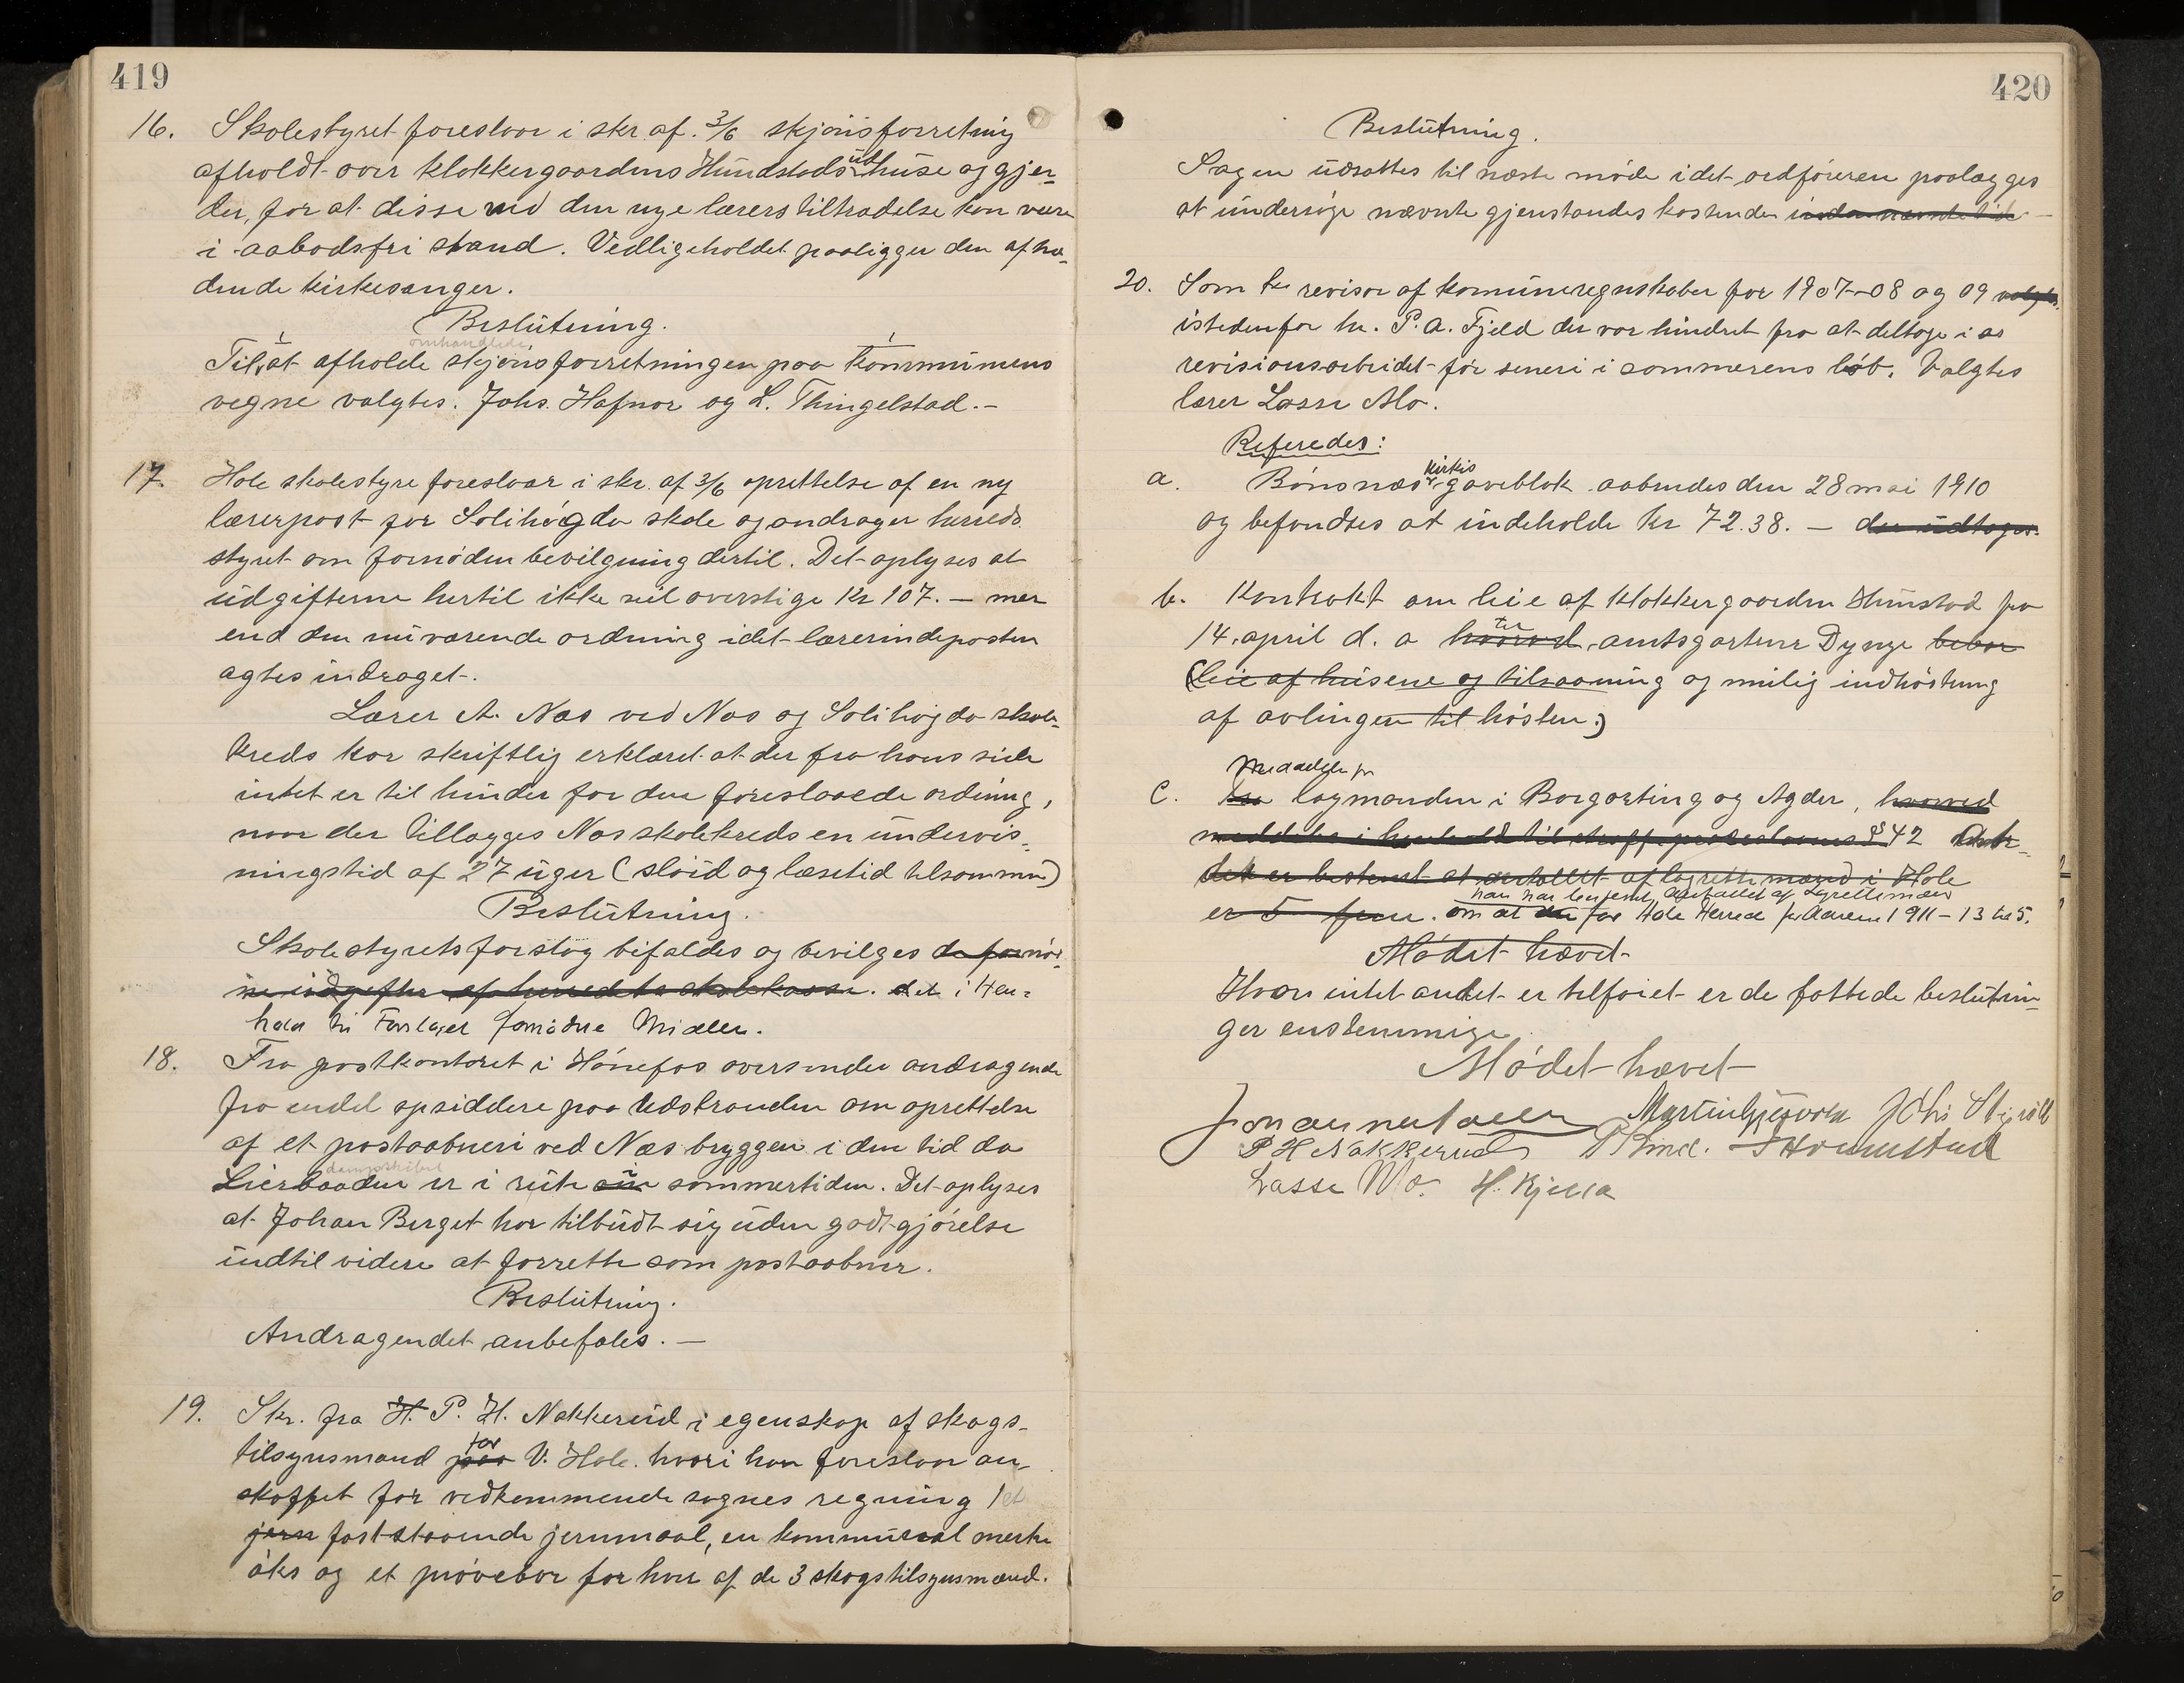 419
16. Skolestyret foreslaar i skr. af. 3/6 skjønsforretning
afholdt over klokkergaardens Hundstads ud huse og gjer-
der, for at disse ved den nye lærers tiltrædelse kan være
i aabodsfri stand. Vedligeholdet paaligger den afhol-
dende kirkesanger.
Beslutning.
omhandlede
Til at afholde skjønsforretningen paa kommunens
vegne valgtes. Johs. Hafnor og L. Thingelstad.-
17. Hole skolestyre foreslaar i skr. af 3/6 oprettelse af en ny
lærerpost for Solihøgda skole og andrager herreds
styret om fornøden bevilgning dertil. Det oplyses at
udgifterne hertil ikke vil overstige Kr 107.- mer
end den nuværende ordning idet lærerindeposten
agtes indraget-.
Lærer A. Næs ved Næs og Solihøgda skole-
kreds har skriftlig erklæret at der fra hans side
intet er til hinder for den foreslaaede ordning,
naar der tillægges Næs skolekreds en undervis-
ningstid af 27 uger (sløid og læsetid tilsammen)
Beslutning.
Skolestyrets forslag bifaldes og bevilges de fornød-
ne udgifter af herredets skolekasse. det i Hen-
hold til Forslaget fornødne Midler.
18. Fra postkontoret i Hønefos oversendes andragende
fra endel opsiddere paa Udstranden om oprettelse
af et postaabneri ved Næs bryggen i den tid da
dampskibet
Lierbaaden er i rute om sommertiden. Det oplyses
at Johan Berget har tilbudt sig uden godtgjørelse
indtil videre at forrette som postaabner.
Beslutning.
Andragendet anbefales.-
19. Skr. fra H. P. H. Nakkerud i egenskap af skogs-
for
tilsynsmand paa V. Hole. hvori han foreslaar an-
skaffet for vedkommende sognes regning 1 et
jern faststaaende jernmaal, en kommunal merke
øks og et prøvebor for hver af de 3 skogstilsynsmænd.
420
Beslutning.
Sagen udsættes til næste møde idet ordføreren paalægges
at undersøge nævnte gjenstandes kostende inden nævnte tid -
20. Som revisor af komuneregnskaber for 1907-08 og 09 valgtes
istedenfor hr. P. A. Fjeld der var hindret fra at deltage i
revisionsarbeidet før senere i sommerens løb. Valgtes
lærer Lasse Mo.
Referedes:
kirkes
a. Bønsnæs gaveblok aabnedes den 28 mai 1910
og befandtes at indeholde kr 72.38.- der udtoges.
b. Kontrakt om leie af klokkergaarden Hunstad fra
til
14. april d. a hvorved amtsgartner Dynge bebor
(leie af husene og tilsaaning og mulig indhøstning
af avlingen til høsten.)
Meddelelse fra
c. fra lagmanden i Borgarting og Agder, hvorved
meddeles i henhold til straffeprosesloven § 42
det er bestemt at antallet af lagrettemænd i Hole
han har bestemt Antallet af Lagrettemænd
er 5 fem. om at for Hole Herred for Aarene 1911-13 til 5.
Mødet hævet-
Hvor intet andet er tilføiet er de fattede beslutnin-
ger enstemmige.
Mødet hævet
P H Nakkerud
Lasse Mo. H. Kjella